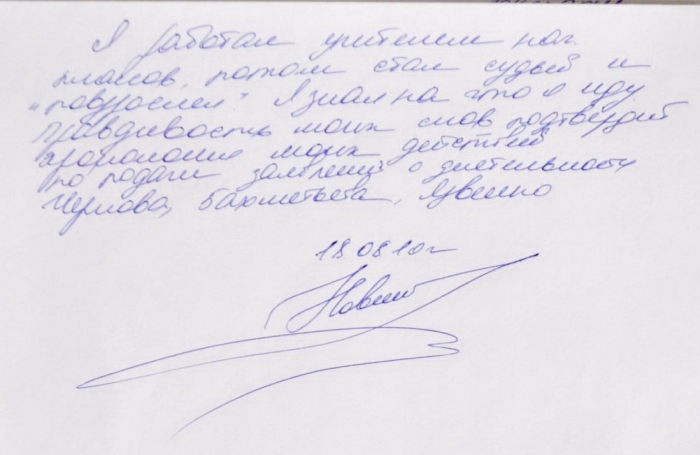 Я работал учителем нач.
классов, потом стал судьей и
"повзрослел". Я знал на что я иду
правдивость моих слов подтвердит
хронология моих действий
по подаче заявлений о деятельности
Чернова, Бахметьева, Язвенко
18.08.10г
Новик